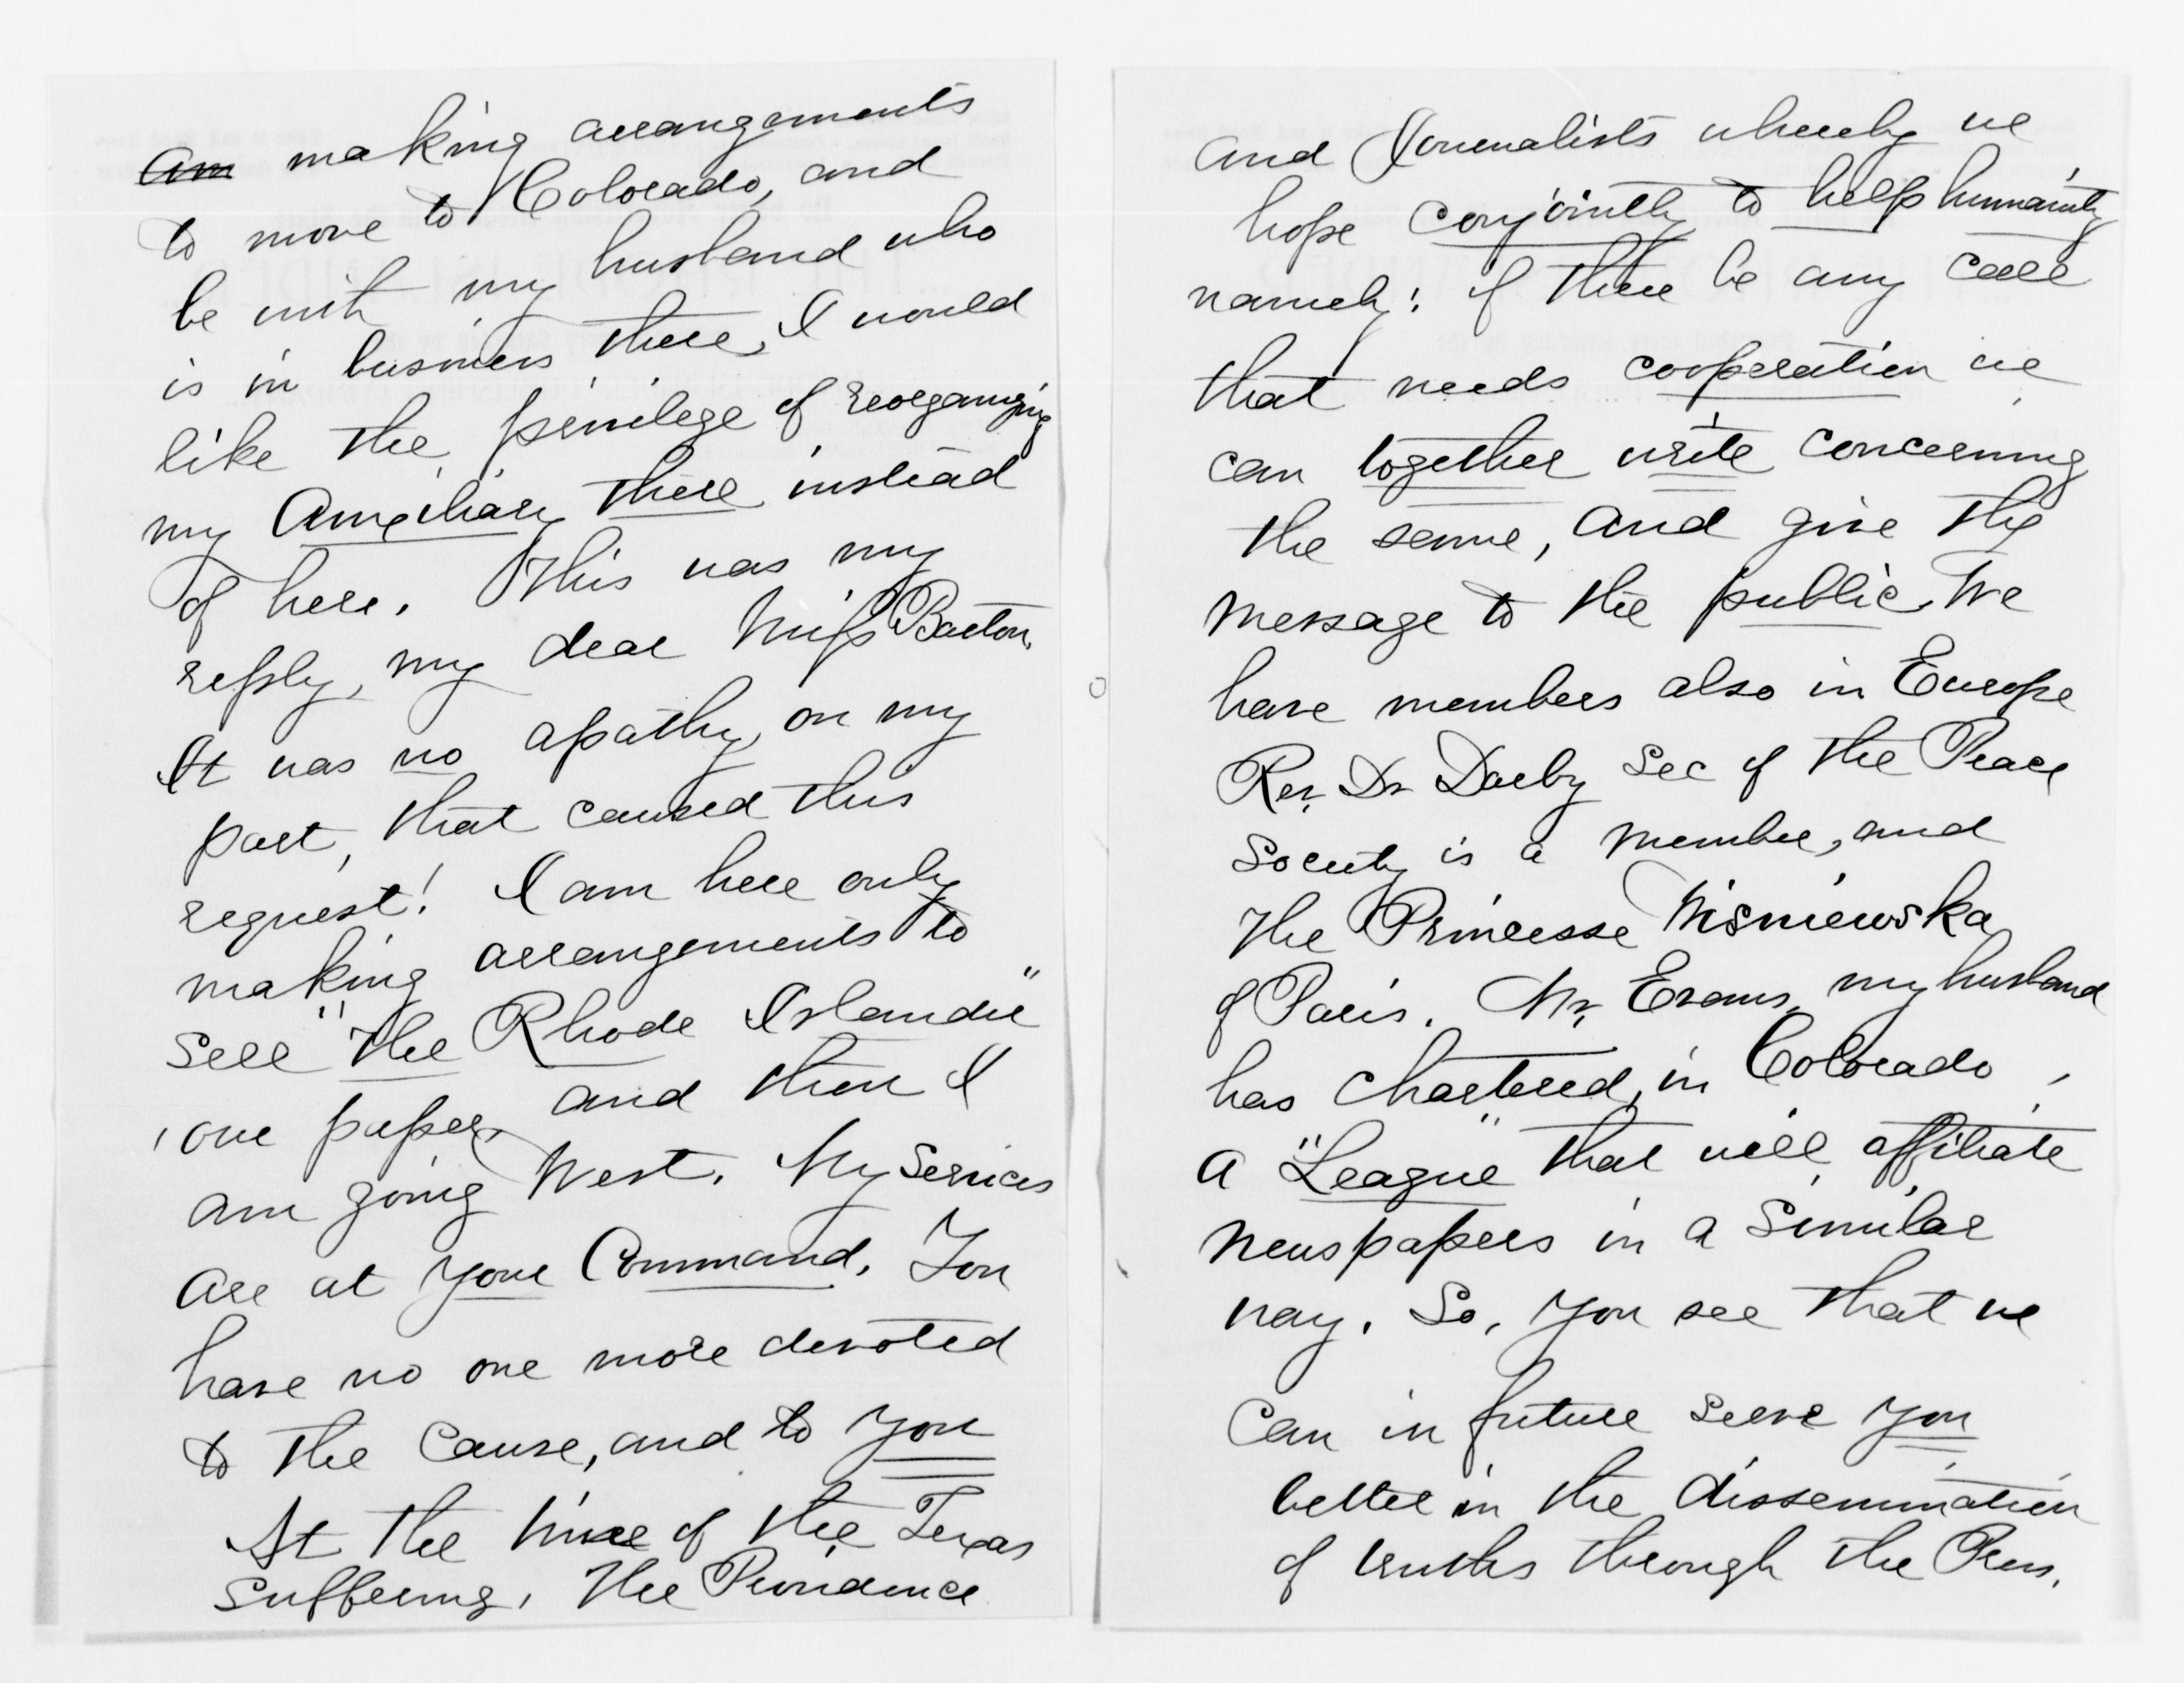 am making arrangements
to move to Colorado, and
be with my husband who
is in business there, I would
like the privilege of reorganizing
my Auxiliary there instead
of here. This was my
reply, my dear Miss Barton.
It was no apathy on my
part, that caused this
request! I am here only
making arrangements to
sell "The Rhode Islander"
our paper, and then I
am going West. My Services
are at your Command. You
have no one more devoted
to the Cause, and to you
At the time of the Texas
suffering, The Providence
and Journalists whereby we
hope conjointly to help humanity
namely: if there be any call
that needs cooperation we
can together write concerning
the same, and give the
message to the public. We
have members also in Europe
Rev. Dr Darby Sec of the Peace
Society is a member, and
The Princesse Wisniewska
of Paris. Mr. Evans, my husband
has chartered, in Colorado,
a "League" that will affiliate
newspapers in a similar
way. So, you see that we
Can in future serve you
better in the dissemination
of truths through the Press.